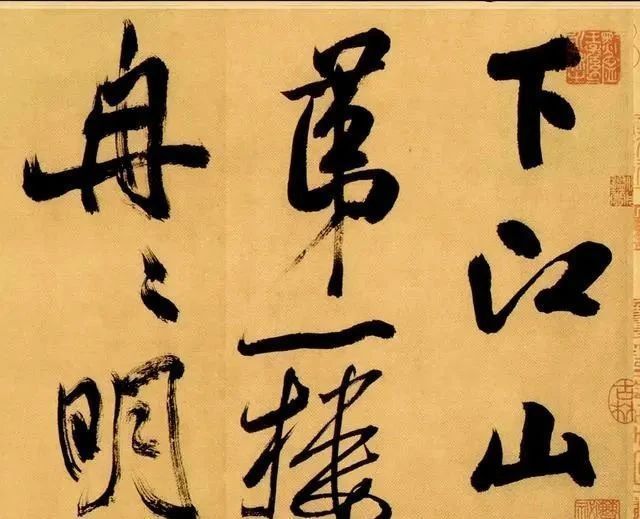 下江山
第一樓
冉〻明